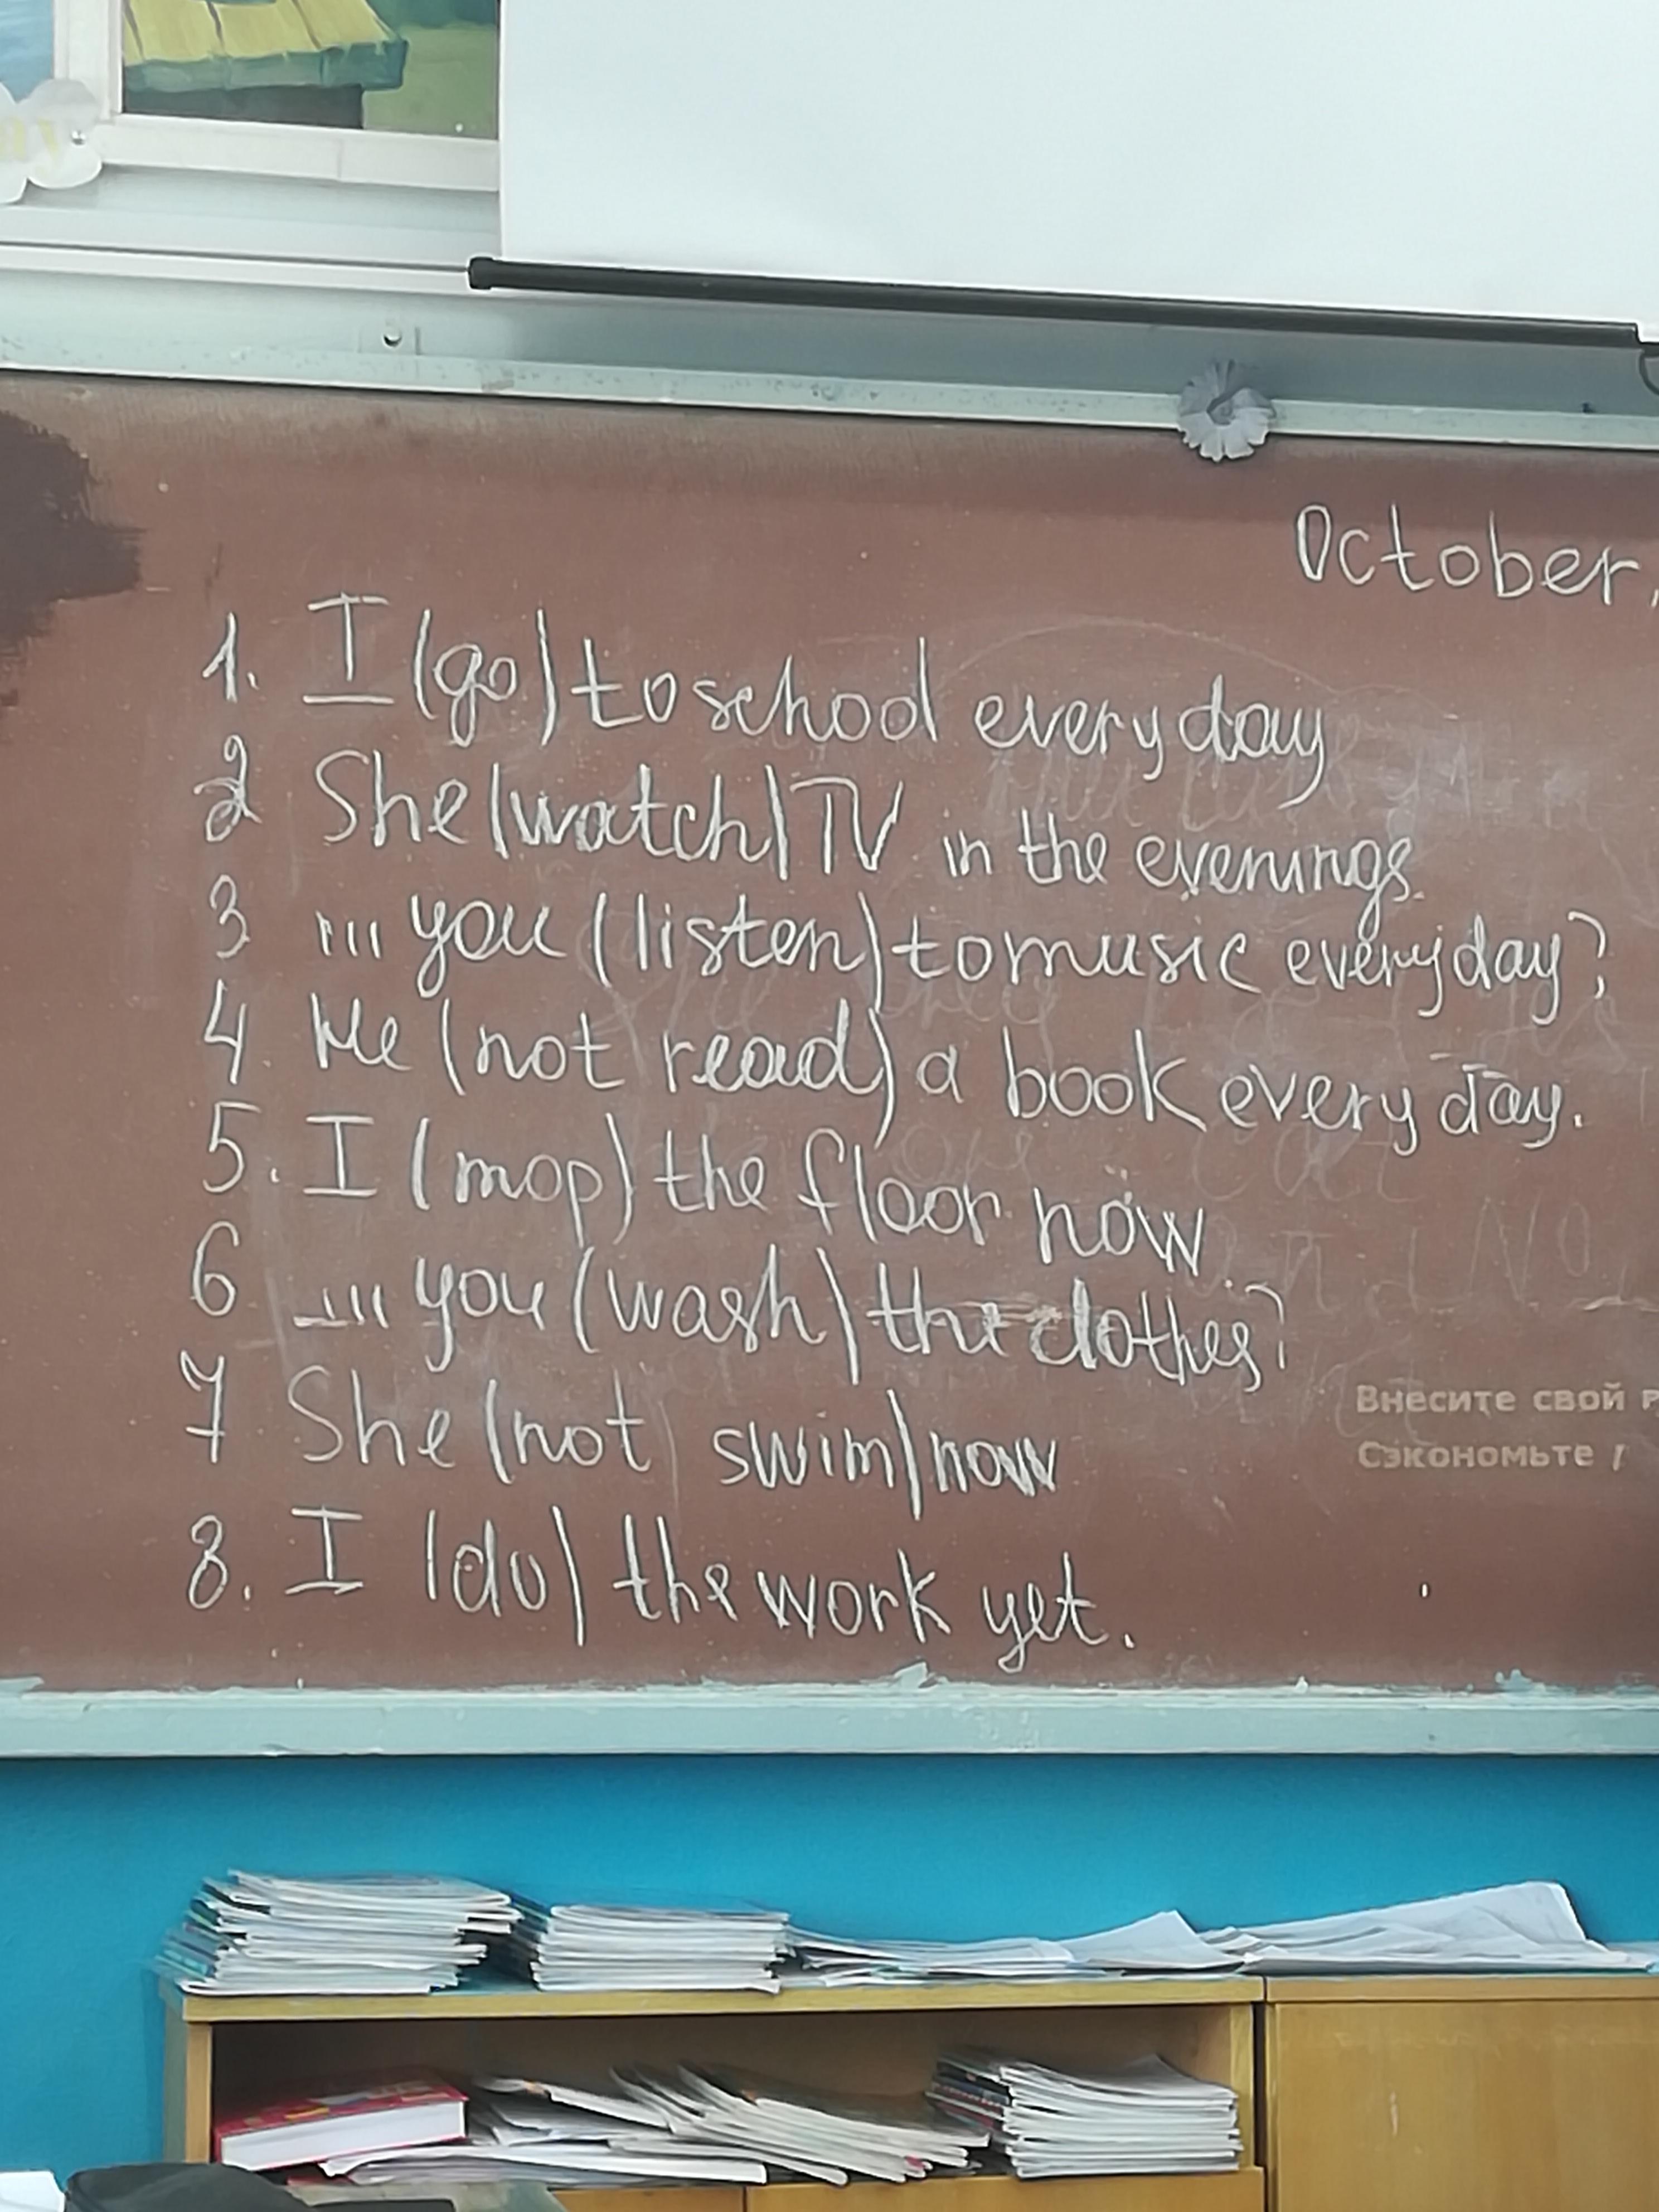 October,
1. I (go) to school every day
2 She (watch) TV in the evenings.
3 ... you (listen) to music every day?
4. He (not read) a book every day.
5. I (mop) the floor now.
6 ... you (wash) the clothes?
7 She (not swim) now
8. I (do) the work yet.
Внесите свой
Сэкономьте